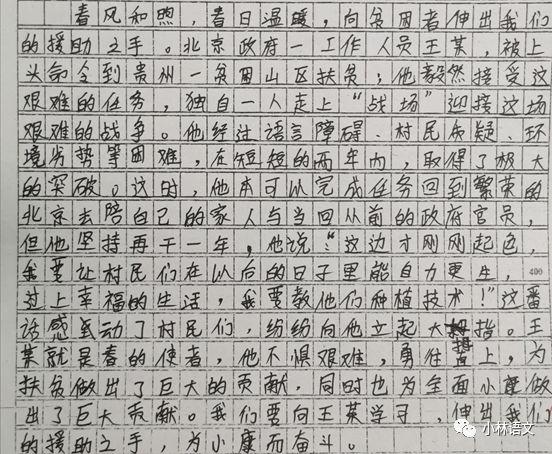 春风和煦，春日温暖，向贫困者伸出我们
的援助之手。北京政府一工作人员王某，被上
头命令到贵州一贫困山区扶贫；他毅然接受这
艰难的任务，独自一人走上“战场”迎接这场
艰难的战争。他经过语言障碍、村民质疑、环
境劣势等困难，在短短的两年内，取得了极大
的突破。这时，他本可以完成任务回到繁荣的
北京去陪自己的家人与当回从前的政府官员，
但他坚持再干一年，他说：“这边才刚刚起色，
我要让村民们在以后的日子里能自力更生，
400
过上幸福的生活，我要教他们种植技术！”这番
话感动了村民们，纷纷向他立起大拇指。王
某就是春的使者，他不惧艰难，勇往直上，为
扶贫做出了巨大的贡献，同时也为全面小康做
出了巨大贡献。我们要向王某学习，伸出我们
的援助之手，为小康而奋斗。
小林语文